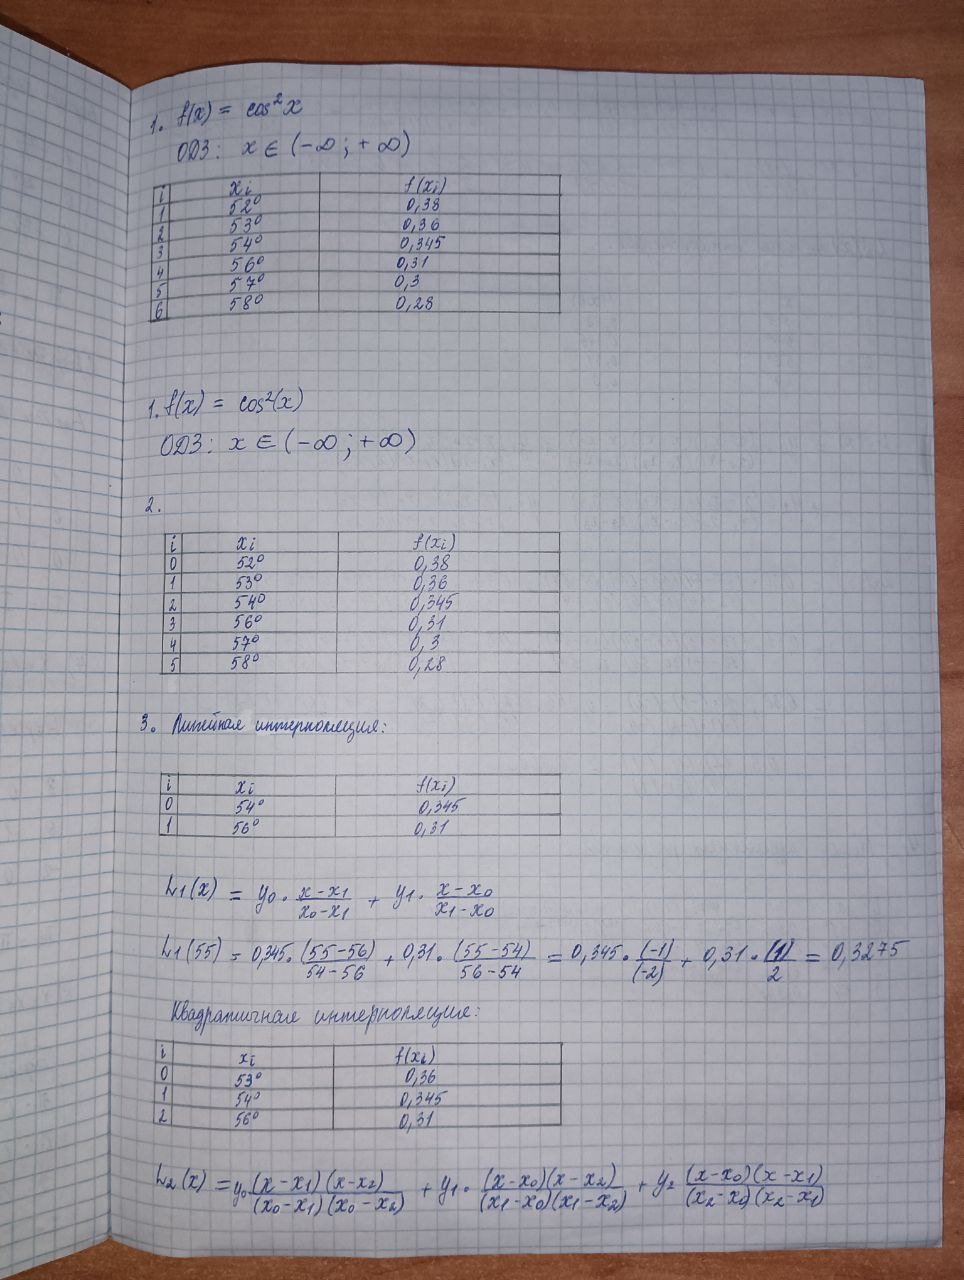 1. f(x) = cos²x
ОДЗ: x ∈ (-∞; +∞)
i xi f(xi)
1 52° 0,38
2 53° 0,36
3 54° 0,345
4 56° 0,31
5 57° 0,3
6 58° 0,28
1. f(x) = cos²(x)
ОДЗ: x ∈ (-∞; +∞)
2.
i xi f(xi)
0 52° 0,38
1 53° 0,36
2 54° 0,345
3 56° 0,31
4 57° 0,3
5 58° 0,28
3. Линейная интерполяция:
i xi f(xi)
0 54° 0,345
1 56° 0,31
L1(x) = y0 · (x-x1)/(x0-x1) + y1 · (x-x0)/(x1-x0)
L1(55) = 0,345 · (55-56)/(54-56) + 0,31 · (55-54)/(56-54) = 0,345 · (-1)/(-2) + 0,31 · (1)/2 = 0,3275
Квадратичная интерполяция:
i xi f(xi)
0 53° 0,36
1 54° 0,345
2 56° 0,31
L2(x) = y0 (x-x1)(x-x2)/(x0-x1)(x0-x2) + y1 · (x-x0)(x-x2)/(x1-x0)(x1-x2) + y2 (x-x0)(x-x1)/(x2-x0)(x2-x1)